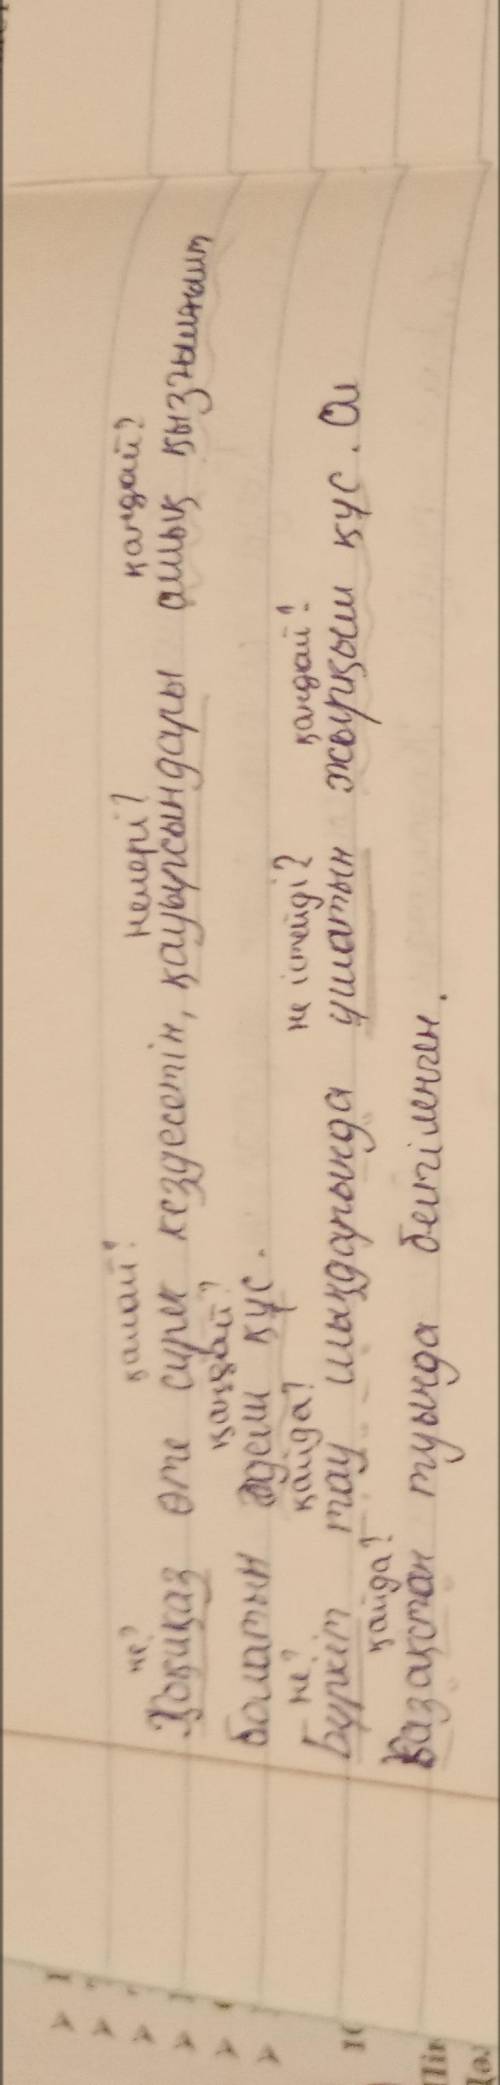 не? қалай? нелері? қандай?
Қоқиқаз өте сирек кездесетін, қауырсындары ашық қызғылт
қандай?
болатын әдемі құс.
не? қайда? не істейді? қандай?
Бүркіт тау шыңдарында ұшатын жыртқыш құс. Ол
қайда?
Қазақстан туында бейнеленген.